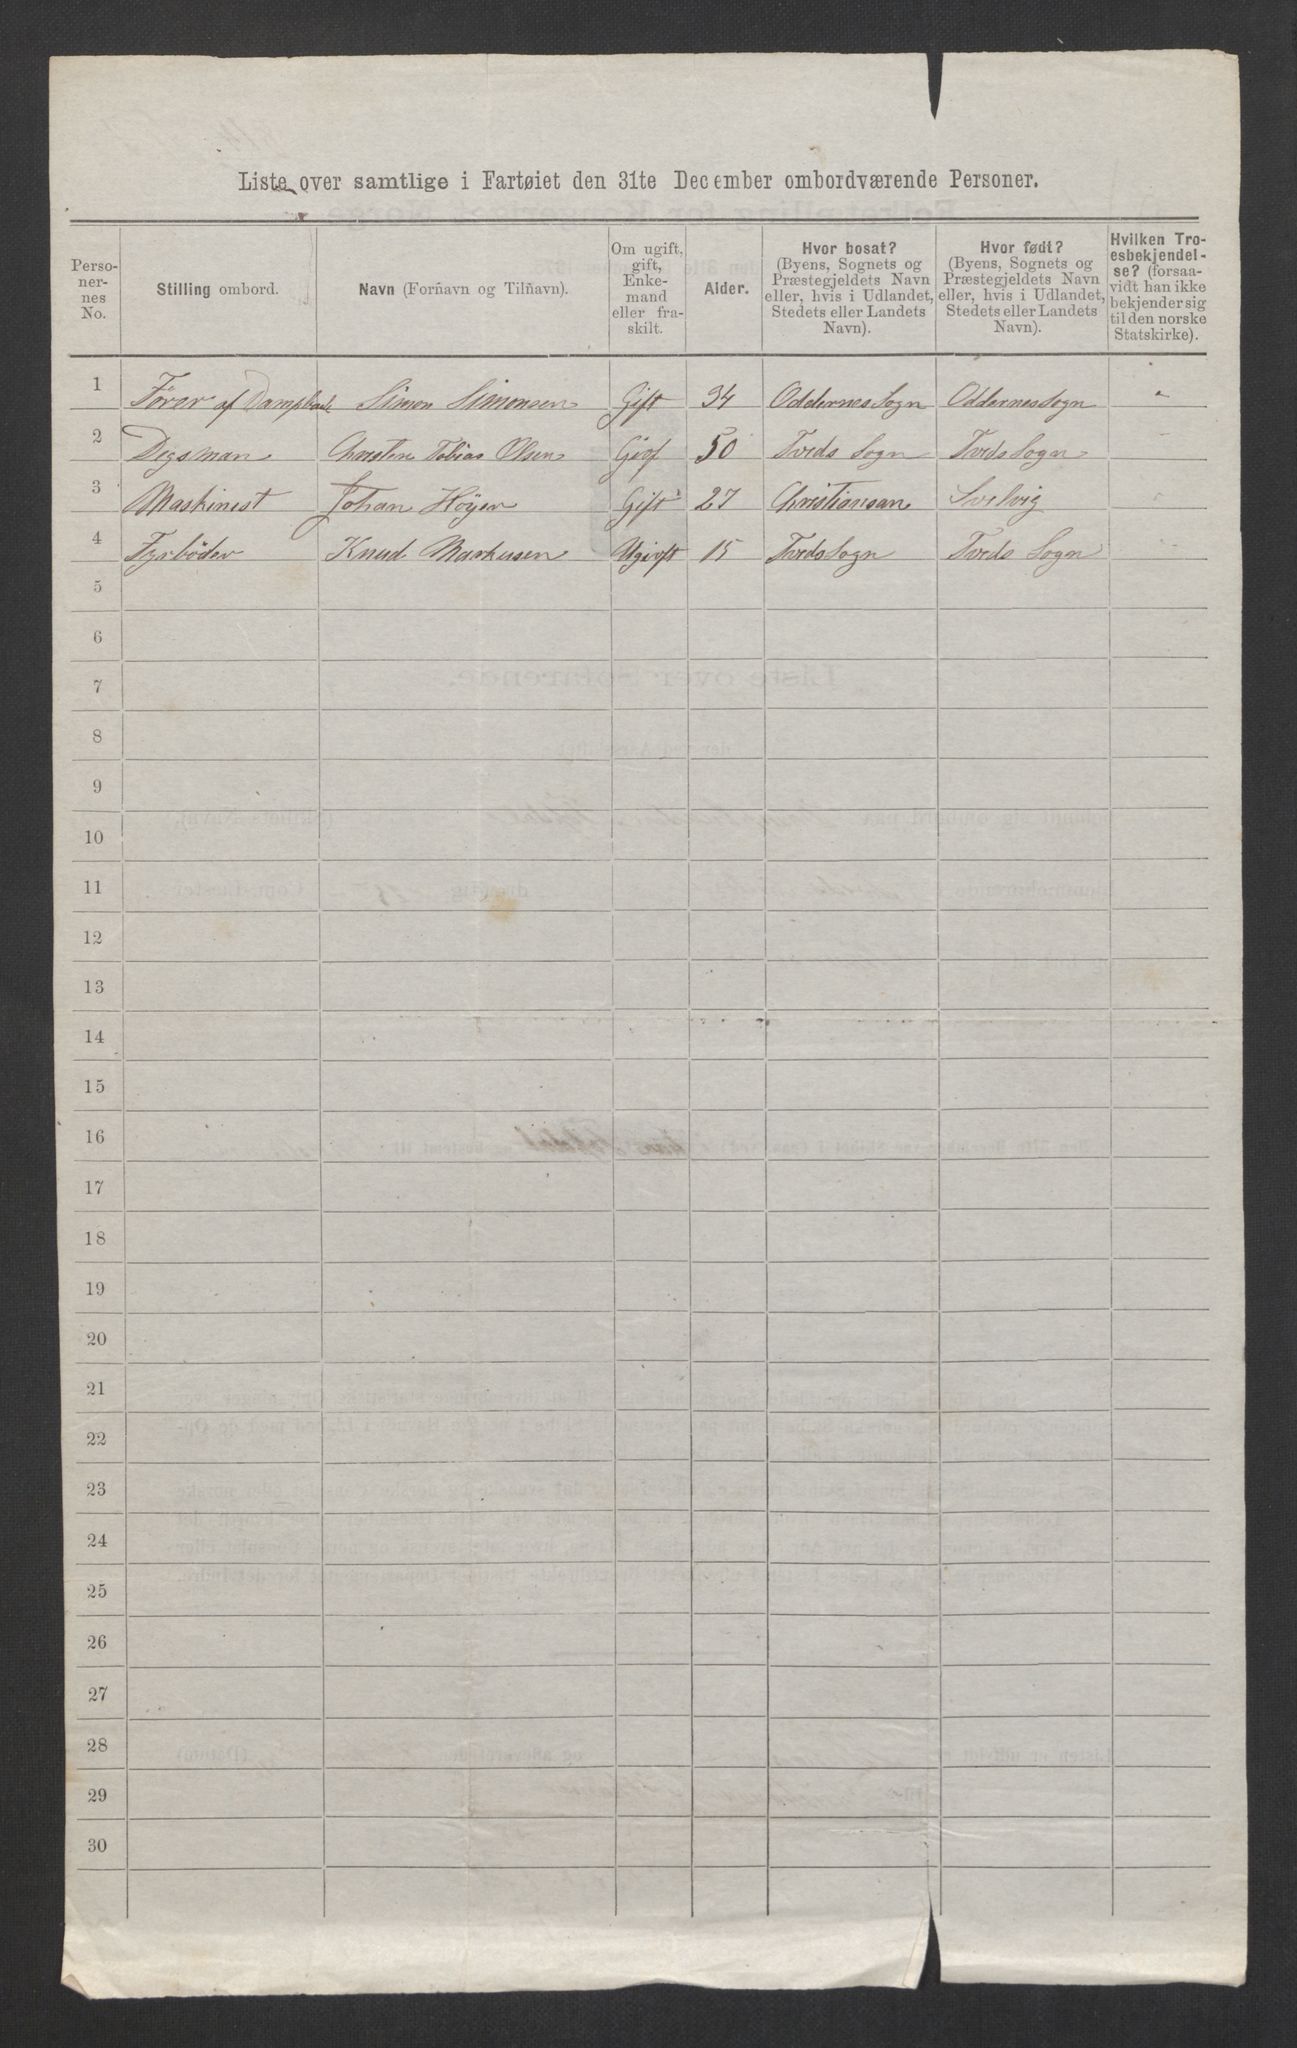 Liste over samtlige i Fartøiet den 31te December ombordværende Personer.
Perso-
ner-
nes
No.
Stilling ombord.
Navn (Forñavn og Tilñavn).
Om ugift,
gift,
Enke-
mand
eller fra-
skilt.
Alder.
Hvor bosat?
(Byens, Sognets og
Præstegjeldets Navn
eller, hvis i Udlandet,
Stedets eller Landets
Navn).
Hvor født?
(Byens, Sognets og
Præstegjeldets Navn
eller, hvis i Udlandet,
Stedets eller Landets
Navn).
Hvilken Tro-
esbekjendel-
se? (forsaa-
vidt han ikke
bekjender sig
til den norske
Statskirke).
1 Fører af Simon Simonsen Gift 34 Oddernes Sogn Oddernes Sogn "
2 Degsman Christen Tobias Olsen Givt 50 Tveds Sogn Tveds Sogn
3 Maskinest Johan Höyer Gift 27 Christiansan Svelvig "
4 Fyrböder Knud Markusen Ugivft 15 Tveds Sogn Tveds Sogn "
5
6
7
8
9
10
11
12
13
14
15
16
17
18
19
20
21
22
23
24
25
26
27
28
29
30